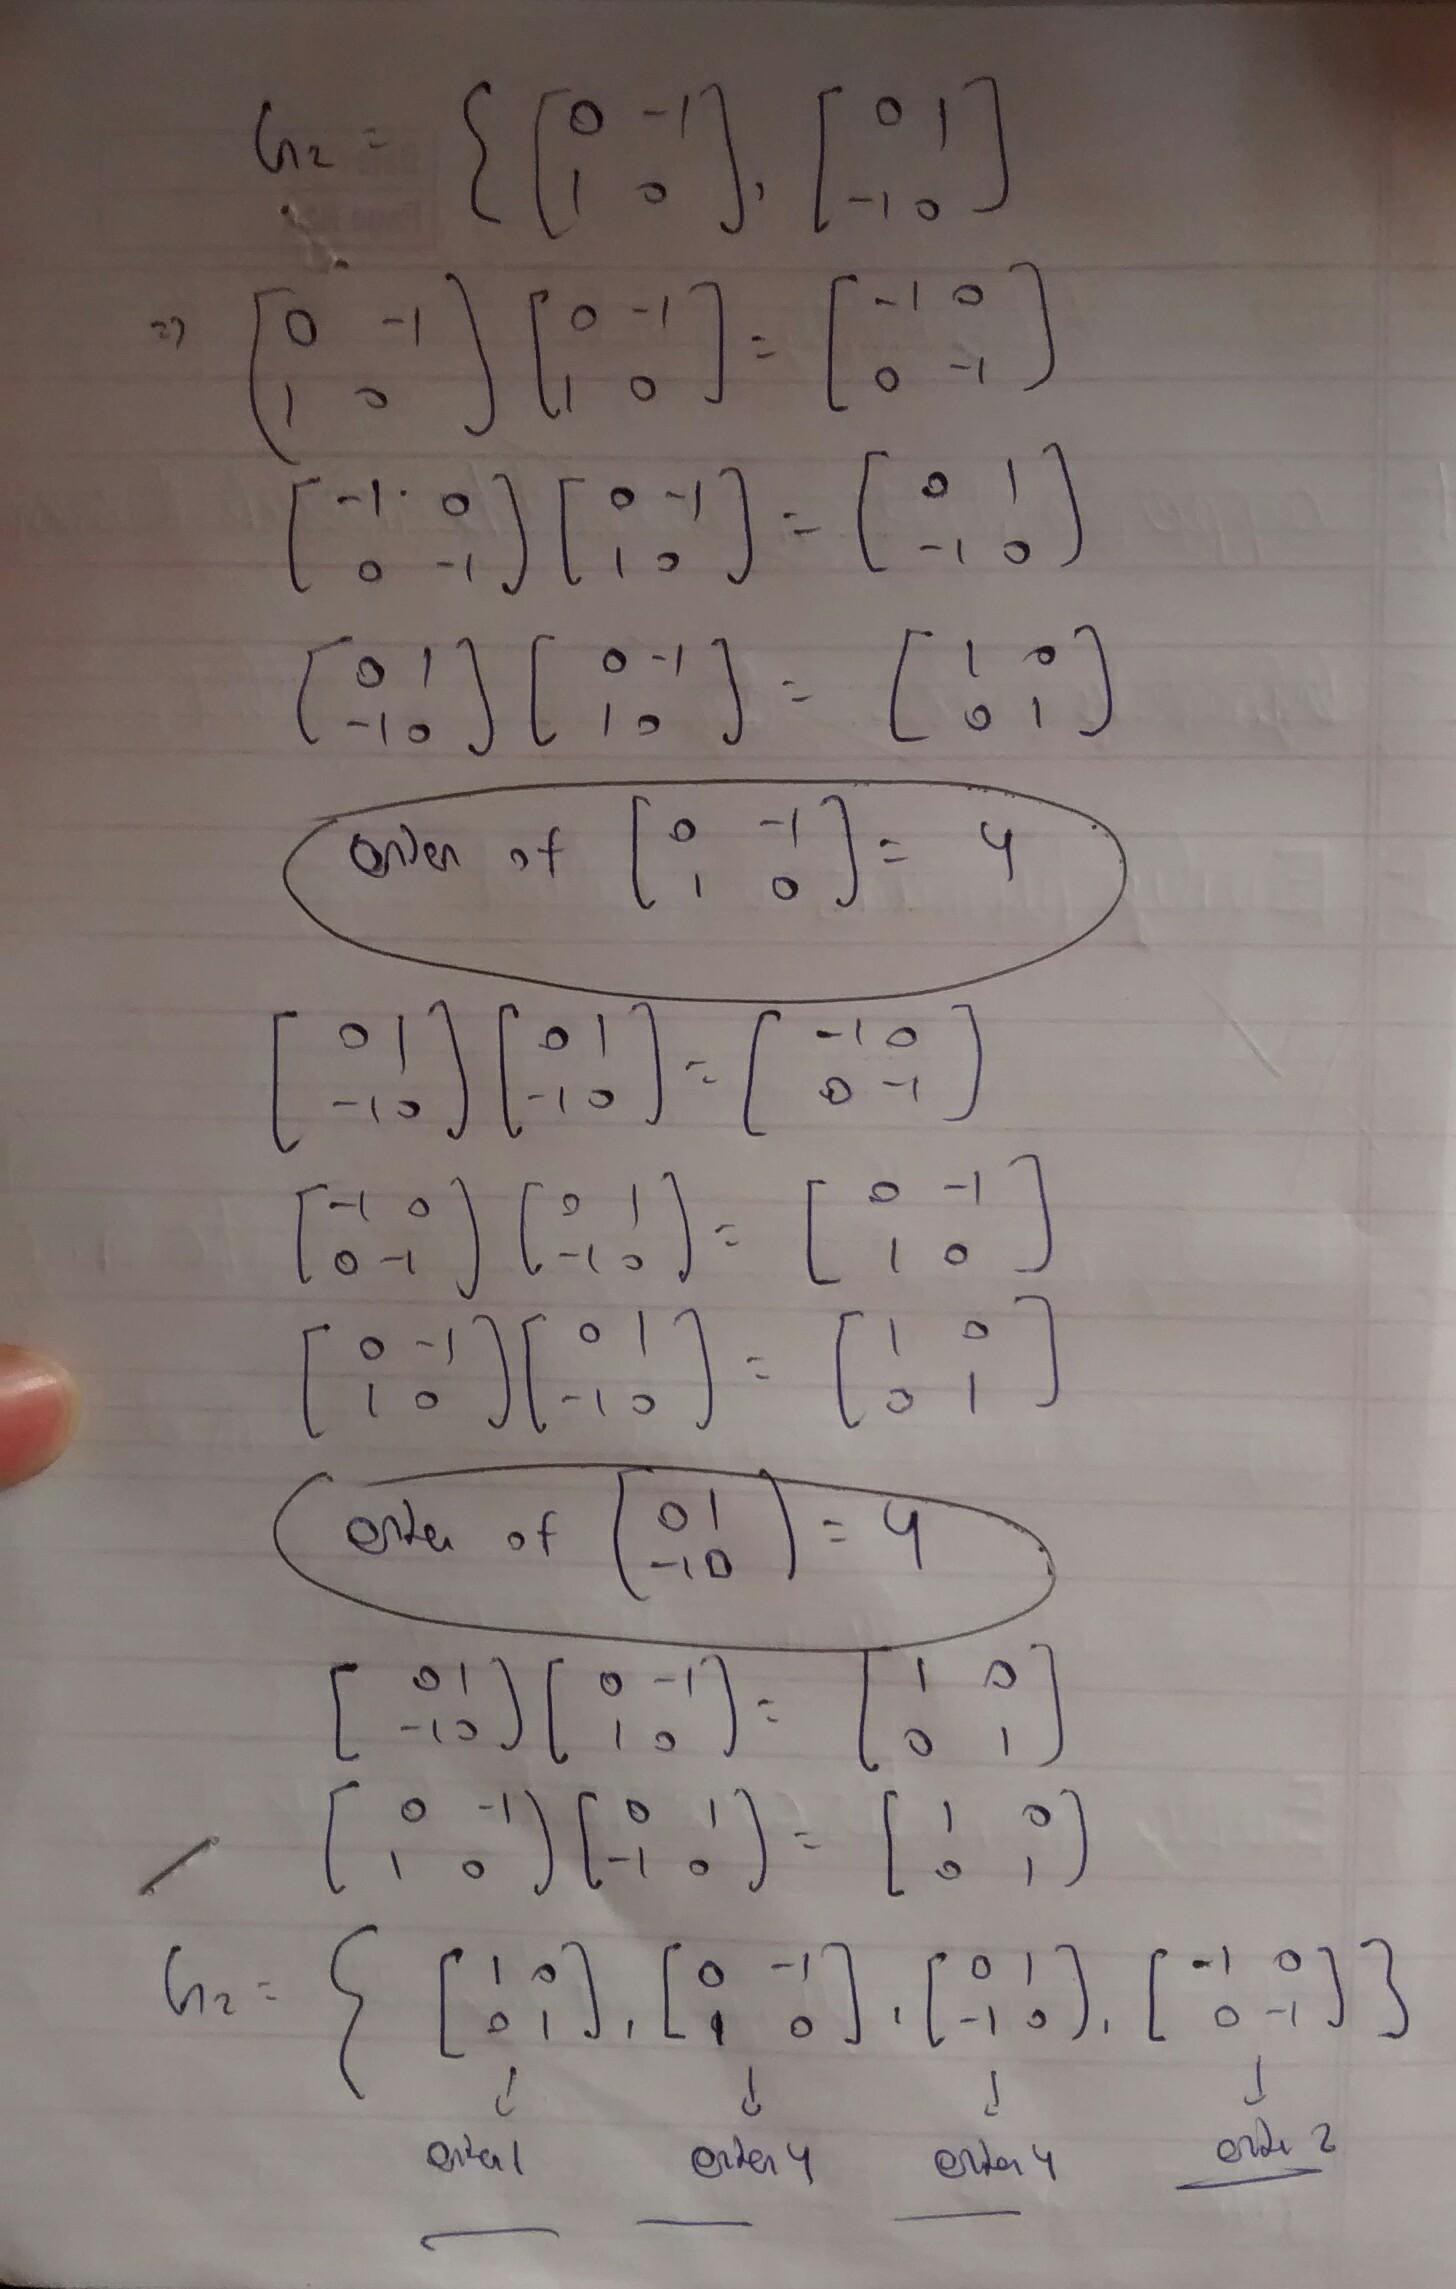 G₂ = { [0 -1; 1 0], [0 1; -1 0]
⇒ [0 -1; 1 0] [0 -1; 1 0] = [-1 0; 0 -1]
[-1 0; 0 -1] [0 -1; 1 0] = [0 1; -1 0]
[0 1; -1 0] [0 -1; 1 0] = [1 0; 0 1]
order of [0 -1; 1 0] = 4
[0 1; -1 0] [0 1; -1 0] = [-1 0; 0 -1]
[-1 0; 0 -1] [0 1; -1 0] = [0 -1; 1 0]
[0 -1; 1 0] [0 1; -1 0] = [1 0; 0 1]
order of [0 1; -1 0] = 4
[0 1; -1 0] [0 -1; 1 0] = [1 0; 0 1]
[0 -1; 1 0] [0 1; -1 0] = [1 0; 0 1]
G₂ = { [1 0; 0 1], [0 -1; 1 0], [0 1; -1 0], [-1 0; 0 -1] }
↓ ↓ ↓ ↓
order 1 order 4 order 4 order 2